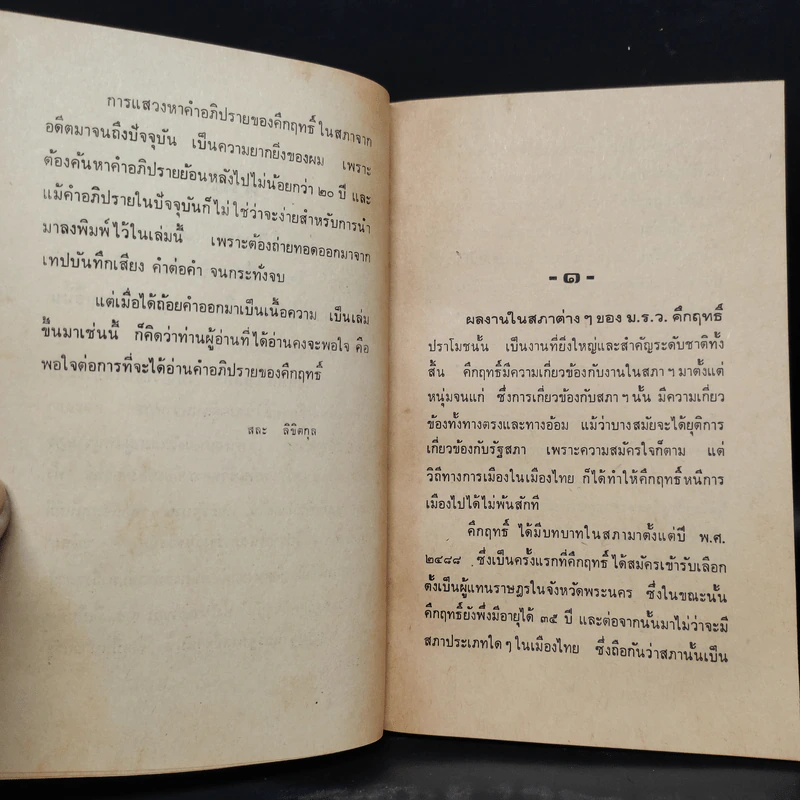 การแสวงหาคำอภิปรายของคึกฤทธิ์ ในสภาจาก
อดีตมาจนถึงปัจจุบัน เป็นความยากยิ่งของผม เพราะ
ต้องค้นหาคำอภิปรายย้อนหลังไปไม่น้อยกว่า ๒๐ ปี และ
แม้คำอภิปรายในปัจจุบันก็ไม่ใช่ว่าจะง่ายสำหรับการนำ
มาลงพิมพ์ไว้ในเล่มนี้ เพราะต้องถ่ายทอดออกมาจาก
เทปบันทึกเสียง คำต่อคำ จนกระทั่งจบ
แต่เมื่อได้ถ้อยคำออกมาเป็นเนื้อความ เป็นเล่ม
ขึ้นมาเช่นนี้ ก็คิดว่าท่านผู้อ่านที่ได้อ่านคงจะพอใจ คือ
พอใจต่อการที่จะได้อ่านคำอภิปรายของคึกฤทธิ์
สละ ลิขิตกุล
-๑-
ผลงานในสภาต่าง ๆ ของ ม.ร.ว. คึกฤทธิ์
ปราโมชนั้น เป็นงานที่ยิ่งใหญ่และสำคัญระดับชาติทั้ง
สิ้น คึกฤทธิ์มีความเกี่ยวข้องกับงานในสภา ฯ มาตั้งแต่
หนุ่มจนแก่ ซึ่งการเกี่ยวข้องกับสภา ฯ นั้น มีความเกี่ยว
ข้องทั้งทางตรงและทางอ้อม แม้ว่าบางสมัยจะได้ยุติการ
เกี่ยวข้องกับรัฐสภา เพราะความสมัครใจก็ตาม แต่
วิถีทางการเมืองในเมืองไทย ก็ได้ทำให้คึกฤทธิ์ หนีการ
เมืองไปได้ไม่พ้นสักที
คึกฤทธิ์ ได้มีบทบาทในสภามาตั้งแต่ปี พ.ศ.
๒๔๘๘ ซึ่งเป็นครั้งแรกที่คึกฤทธิ์ ได้สมัครเข้ารับเลือก
ตั้งเป็นผู้แทนราษฎรในจังหวัดพระนคร ซึ่งในขณะนั้น
คึกฤทธิ์ยังพึ่งมีอายุได้ ๓๕ ปี และต่อจากนั้นมาไม่ว่าจะมี
สภาประเภทใด ๆ ในเมืองไทย ซึ่งถือกันว่าสภานั้นเป็น